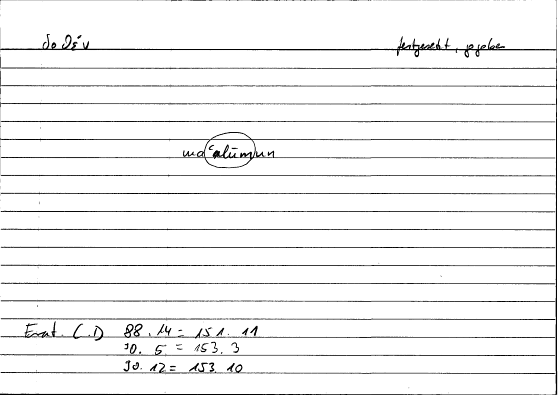 δοθέν festgesetzt, gegeben
maʿlūmun
Erat. (.I) 88. 14 = 151. 11
90. 5 = 153. 3
90. 12 = 153. 10